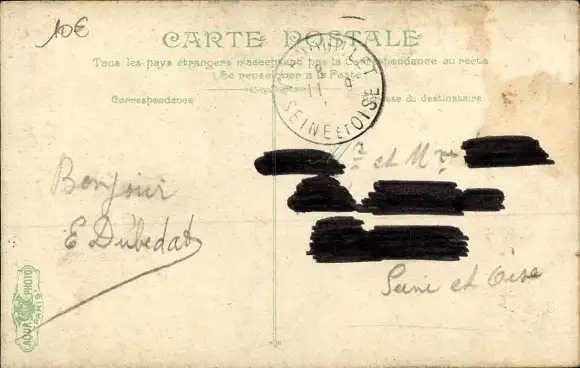 10€
CARTE POSTALE
Tous les pays étrangers n'acceptent pas la Correspondance au recto
Se renseigner à la Poste
Correspondance
Adresse du destinataire
8
11 9
SEINE ET OISE
Mr et Mme
Bonjour
E Dubedat
Seine et Oise
AQUA PHOTO
PARIS